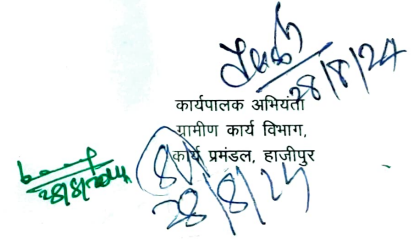 28/8/24
कार्यपालक अभियंता
ग्रामीण कार्य विभाग,
कार्य प्रमंडल, हाजीपुर
28/8/2024
28/8/24